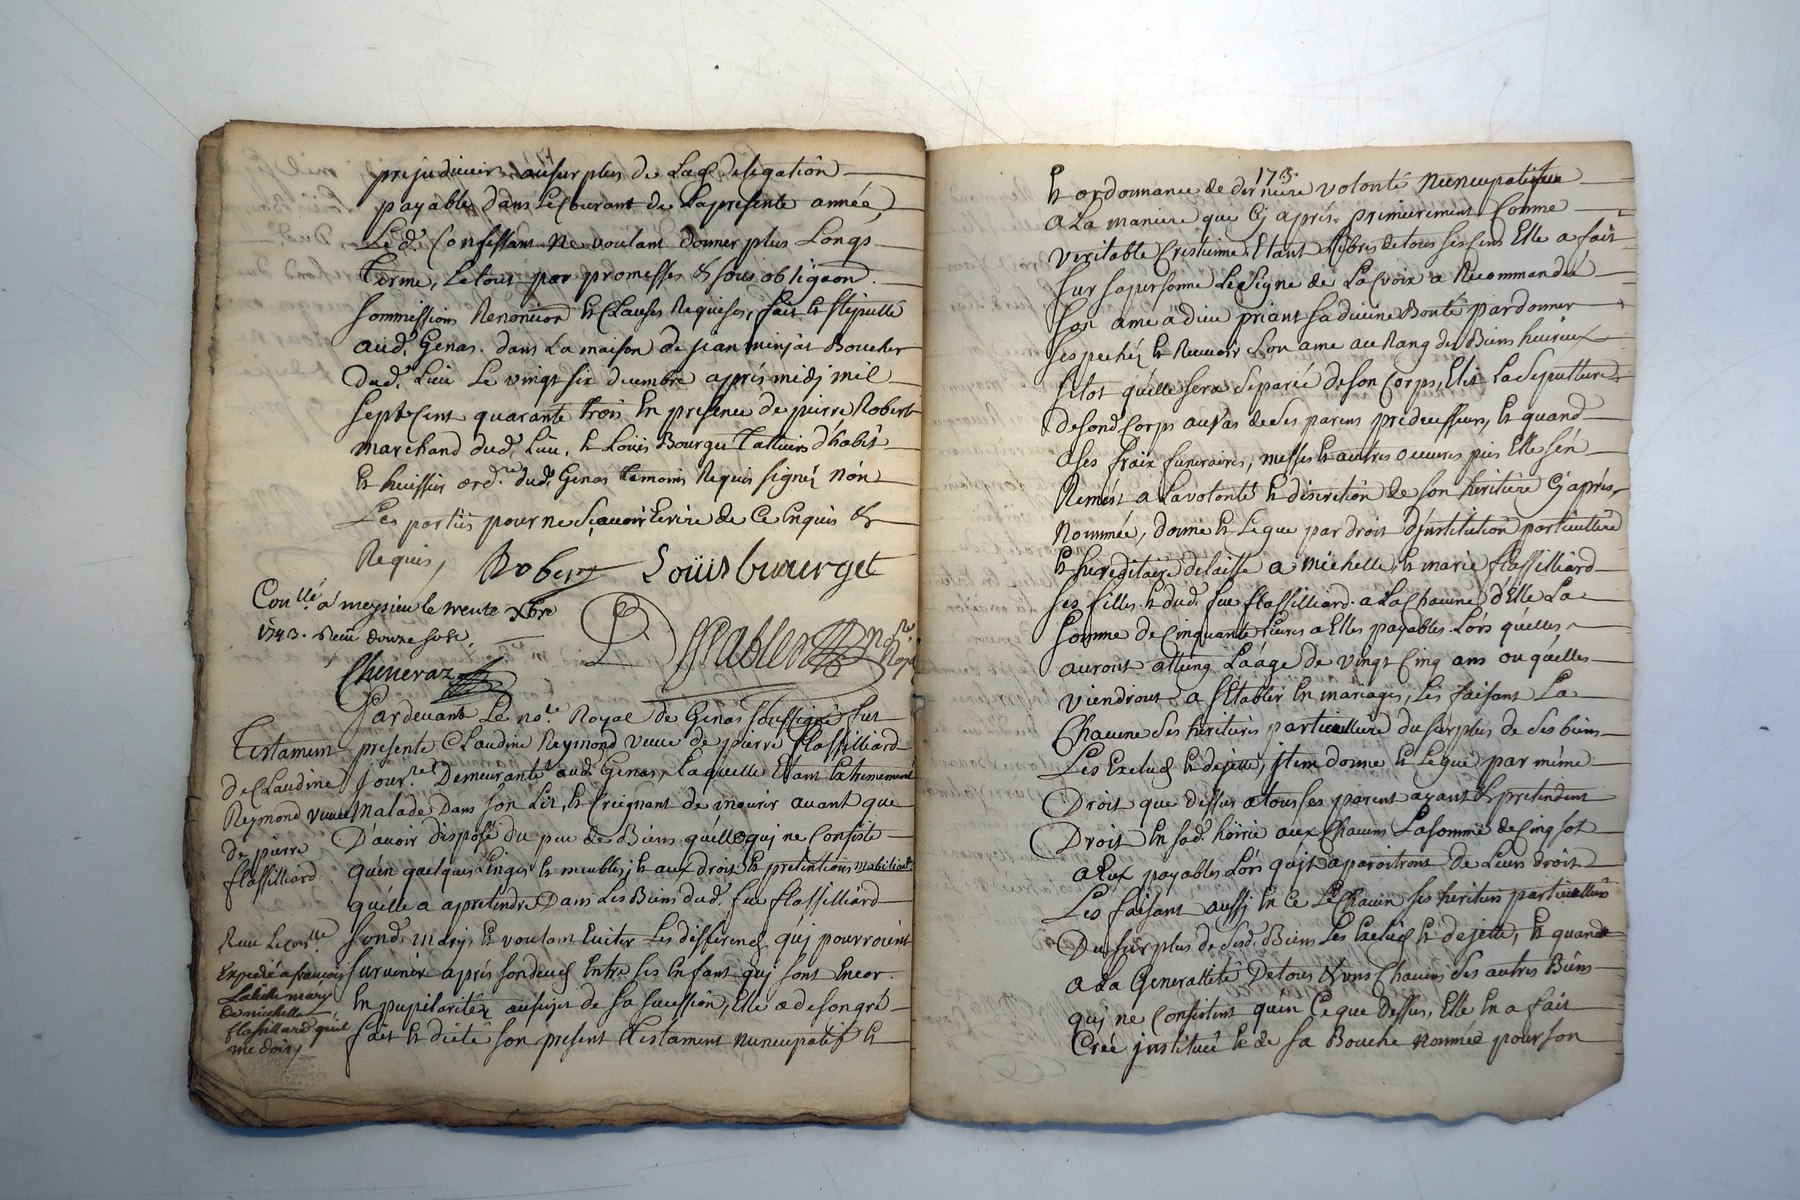 prejudicier ausurplus de Lad delegation
payable dans Le Courant de La presente année,
Led. Confessant ne voulant donner plus Longs
Terme, Le tout par promesses & sous obligaon.
sommissions Renontion & Clauses Requises, fait & stipullé
aud. Genas. dans La maison de jean minjat Boucher
dud. Lieu Le vingt six decembre après midj mil
sept Cent quarante trois En presence de pierre Robert
marchand dud. Lieu, & Loüis Bourget Tallieurs d'habit
& huissier ord.re dud. Genas temoins Requis signés nón
Les parties pour ne sçavoir Ecrire de Ce Enquis &
Requis,
Robert Loüis bourget
Con.llé a meysieu le trente Xbre
1743. Receu douze sols.
Cheneraz
Pardevant Le no.re Royal de Genas soussigné fut
Testament
de Claudine
Reymond veuve
de pierre
flassilliard
presente Claudine Reymond veuve de pierre flassilliard
jour.er Demeurante aud. Genas, Laquelle Etant Extremement
malade Dans son Lit, & Creignant de mourir avant que
D'avoir disposé du peu de Biens quelle quj ne Consiste
qu'en quelques Linges & meubles, & aux droit & pretentions mobiliaires
qu'elle a apretendre Dans Les Biens dud. feu flassilliard
sond. Marj, & voulant Eviter Les differend quj pourroient
survenir après son deces Entre ses Enfant quj sont Encor
En pupilarités ausujet de sa sucession, Elle a de son gré
fait & dicté son present Testament nuncupatif &
Expedié a francois
Labalme mary
de michelle
flassillard qu'il
me doit,
173.
& ordonnance de derniere volonté nuncupative
a La maniere que Cj après. premierement Comme
veritable Crestienne Etant Libres de tous ses sens Elle a fait
sur sa personne Le signe de La Croix a Recommandé
son ame a dieu priant sa divine Bonté pardonner
ses pechéz & Recevoir son ame au Rang des Biens heureux
sitot qu'elle sera Separée de son Corps, Elit La Sepulture
de sond Corps au Vas de des parens predecesseurs, & quand
a ses fraix funeraires, messes & autres oeuvres pies Elle s'en
Remest a La volonté & discretion de son heritiere Cj après
nommée, donne & Legue par droit d'jnstitution particulliere
& hereditaire delaisse a michelle, & marie flassilliard
ses filles & dud. feu flassilliard. a La Chacune d'Elle La
somme de Cinquante Livres a Elles payables Lors qu'elles
auront atteing L'aáge de vingt Cinq ans ou qu'elles
viendront a s'Etablir En mariages, Les faisant La
Chacune ses heritieres particulliere du surplus de ses biens
Les Exclud & dejette, jtem donne & Legue par même
Droit que dessus a tous ses parent ayant & pretendent
Droit En sad. hoirie aux Chacuns La somme de Cinq sol
a Eux payables Lors qu'jl aparoitront de Leurs droit
Les faisant aussj En Ce Le Chacun ses heritiers particulliers
Du surplus de sesd. Biens Les Exclud & dejette, & quand
a La Generallité De tous & uns Chacuns ses autres Biens
quj ne Consistent qu'en Ce que Dessus, Elle En a fait
Créé jnstitué & de sa Bouche nommée pour son